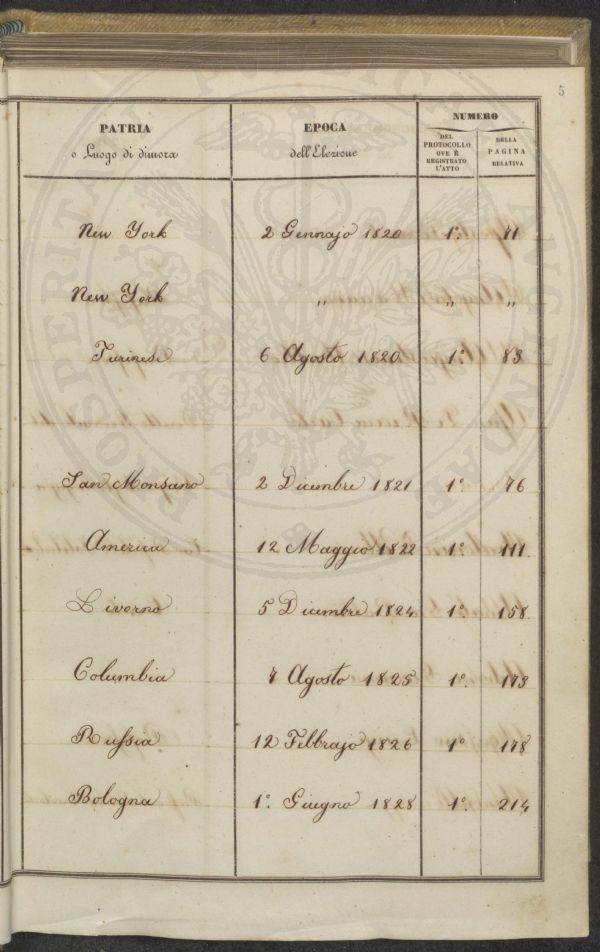 5
PATRIA
o Luogo di dimora
EPOCA
dell'Elezione
NUMERO
DEL
PROTOCOLLO
OVE È
REGISTRATO
L'ATTO
DELLA
PAGINA
RELATIVA
New York 2 Gennajo 1820 1°. 41
New York „ „ „
Turinese 6 Agosto 1820 1°. 83
San Monsano 2 Dicembre 1821 1°. 76
America 12 Maggio 1822 1°. 111
Livorno 5 Dicembre 1824 1°. 158
Columbia 7 Agosto 1825 1°. 173
Russia 12 Febbrajo 1826 1° 178
Bologna 1°. Giugno 1828 1°. 214